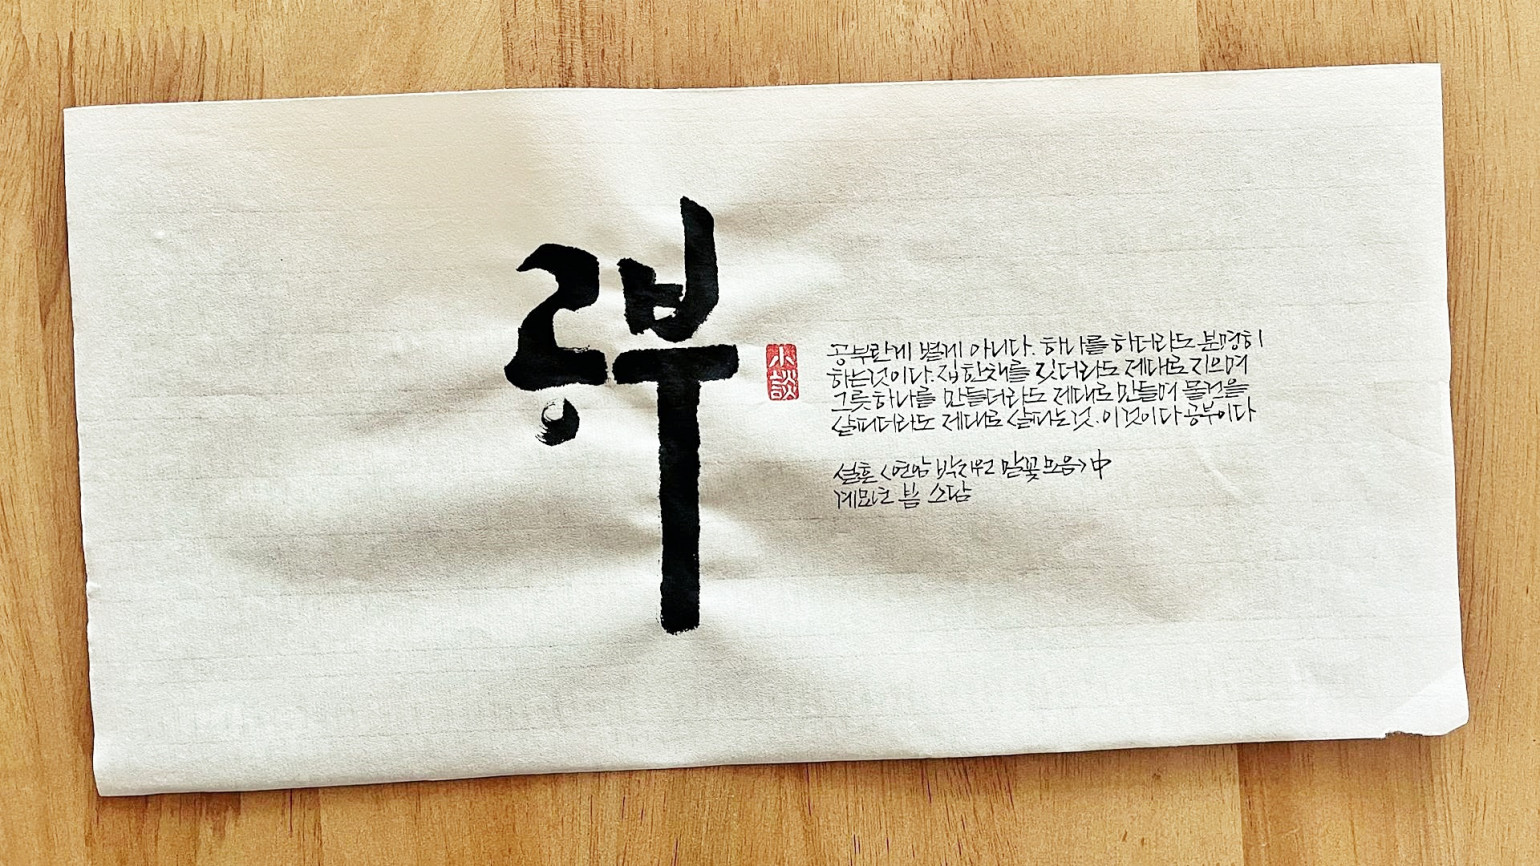 공부
小談
공부란게 별게 아니다. 하나를 하더라도 분명히
하는것이다. 집 한채를 짓더라도 제대로 지으며
그릇하나를 만들더라도 제대로 만들며 물건을
살피더라도 제대로 살피는것. 이것이 다 공부이다
설흔 <연암 박지원 말꽃모음> 中
계묘년 봄 소담